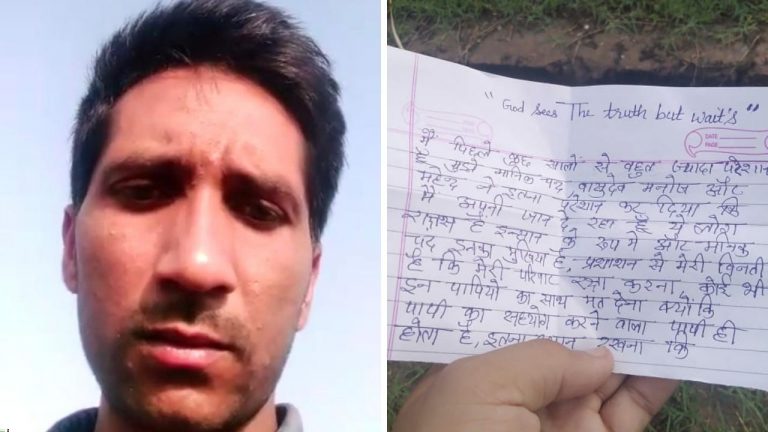 " God sees The truth but wait's "
DATE
PAGE
मैं पिछले कुछ सालों से बहुत ज्यादा परेशान
है मुझे मानिक चंद, वासुदेव मनोज और
महेन्द्र ने इतना परेशान कर दिया कि
मैं अपनी जान दे रहा हूँ ये लोग
राक्षस है इन्सान के रूप में और मानिक
चंद इनका मुखिया है, प्रशाशन से मेरी विनती
है कि मेरी परिवार रक्षा करना, कोई भी
इन पापियों का साथ मत देना क्योंकि
पापी का सहयोग करने वाला पापी ही
होता है, इतना रखना कि